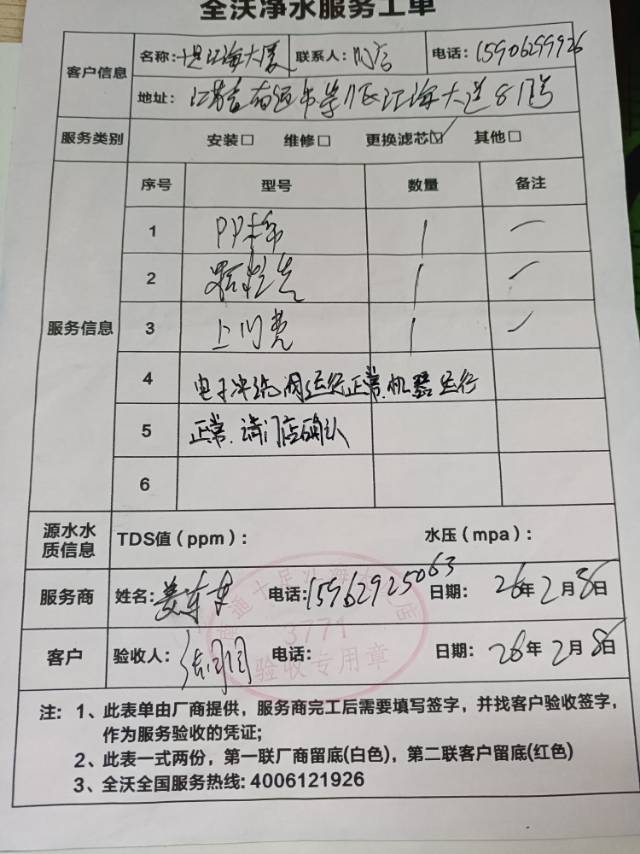 全沃净水服务工单
客户信息
名称：十足江海大厦 联系人：门店 电话：15906299926
地址：江苏省南通市崇川区江海大道817号
服务类别 安装□ 维修□ 更换滤芯☑ 其他□
服务信息
序号 型号 数量 备注
1 PP棉 1 一
2 颗粒炭 1 一
3 1
4 电子冲洗阀运行正常.机器运行
5 正常.请门店确认
6
源水水质信息 TDS值（ppm）： 水压（mpa）：
服务商 姓名： 电话：15962925063 日期：26年2月8日
客户 验收人： 电话： 日期：26年2月8日
3771
验收专用章
注：1、此表单由厂商提供，服务商完工后需要填写签字，并找客户验收签字，
作为服务验收的凭证；
2、此表一式两份，第一联厂商留底(白色)，第二联客户留底(红色)
3、全沃全国服务热线：4006121926